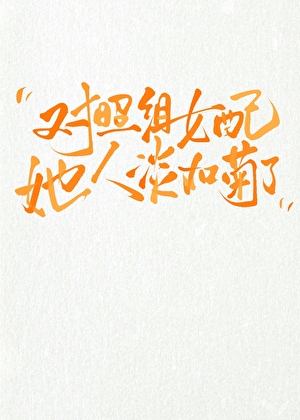 “对照组女配
她人淡如菊了”